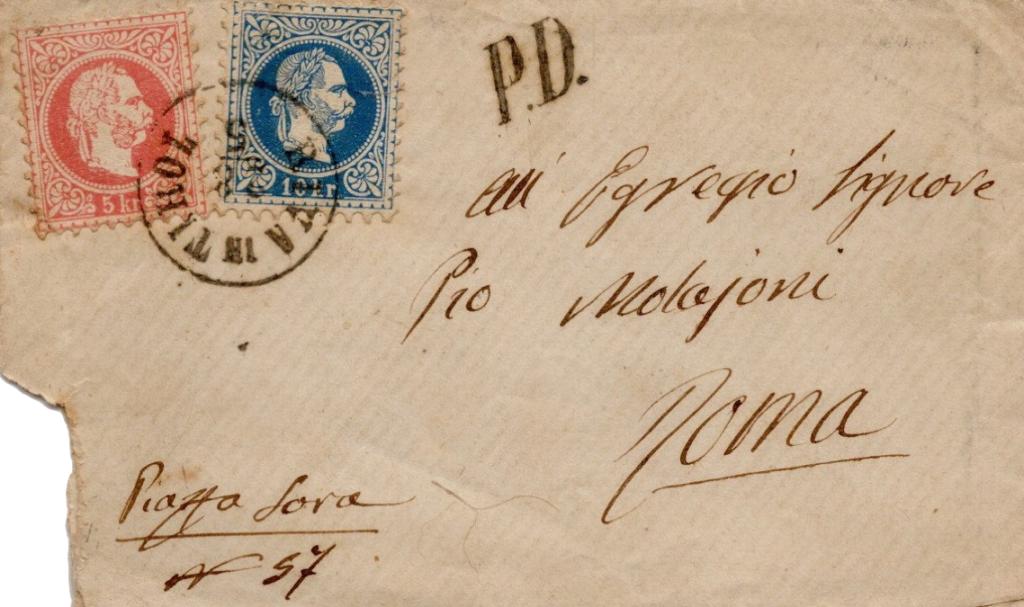 5 kr
10 kr
IVA IN TIROL
P.D.
all' Egregio Signore
Pio Molajoni
Roma
Piazza Sora
N 57